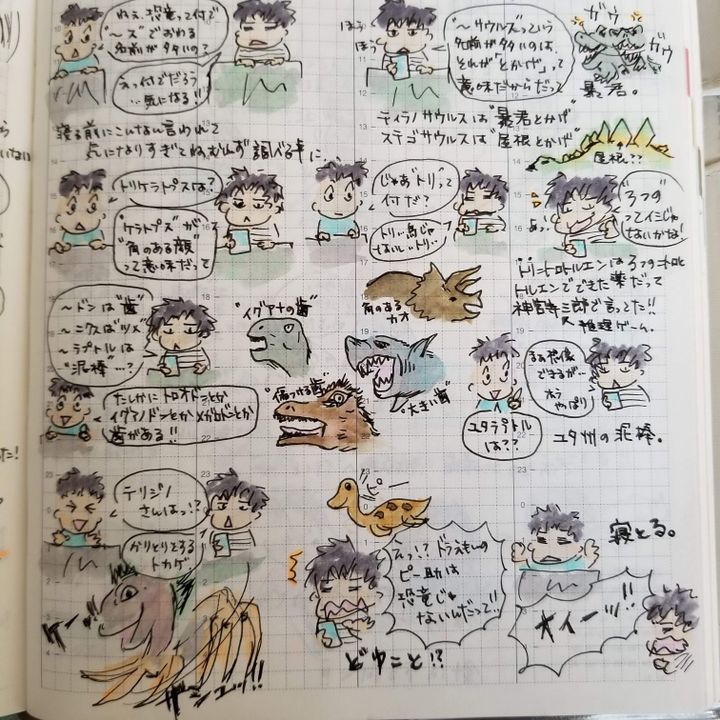 ねぇ、恐竜って付で
"〜ズ"でおわる
名前が多いの?
えっ付でだろう
…気になる!!
ほぅ
ほぅ
"〜サウルズ"っていう
名前が多いのは、
それが「とかげ」って
意味だからだって
ガウ
ガウ
暴君。
寝る前にこんなん言われて
気になりすぎてねむれず調べる年に
ティラノサウルスは"暴君とかげ"
ステゴサウルスは"屋根とかげ"
屋根??
トリケラトプスは?
"ケラトプズ"が
"角のある顔"
って意味だって
じゃあ"トリ"って
付だ?
トリ…鳥じゃ
ないし…トリ…
"3つ"
ってイミじゃ
ないかな!
トリニトロトルエンは3つのニトロと
トルエンでできた薬だって
神宮寺三郎で言ってた!!
推理ゲーム。
〜ドンは"歯"
〜ニクスは"ツメ"
〜ラプトルは
"泥棒"…?
"イグアナの歯"
角のある
カオ
たしかに トロオドンとか
イグアノドンとかメガロドンとか
歯がある!!
"傷つける歯"
"大きい歯"
ユタラプトル
は??
まぁ想像
できるが…
やっぱり
ユタ州の泥棒。
テリジノ
さんはっ!?
かりとりをする
トカゲ
ピー
えっ!?ドラえもんの
ピー助は
恐竜じゃ
ないんだって!!
どゆこと!?
寝とる。
オイーッ!!
ザシュッ!!